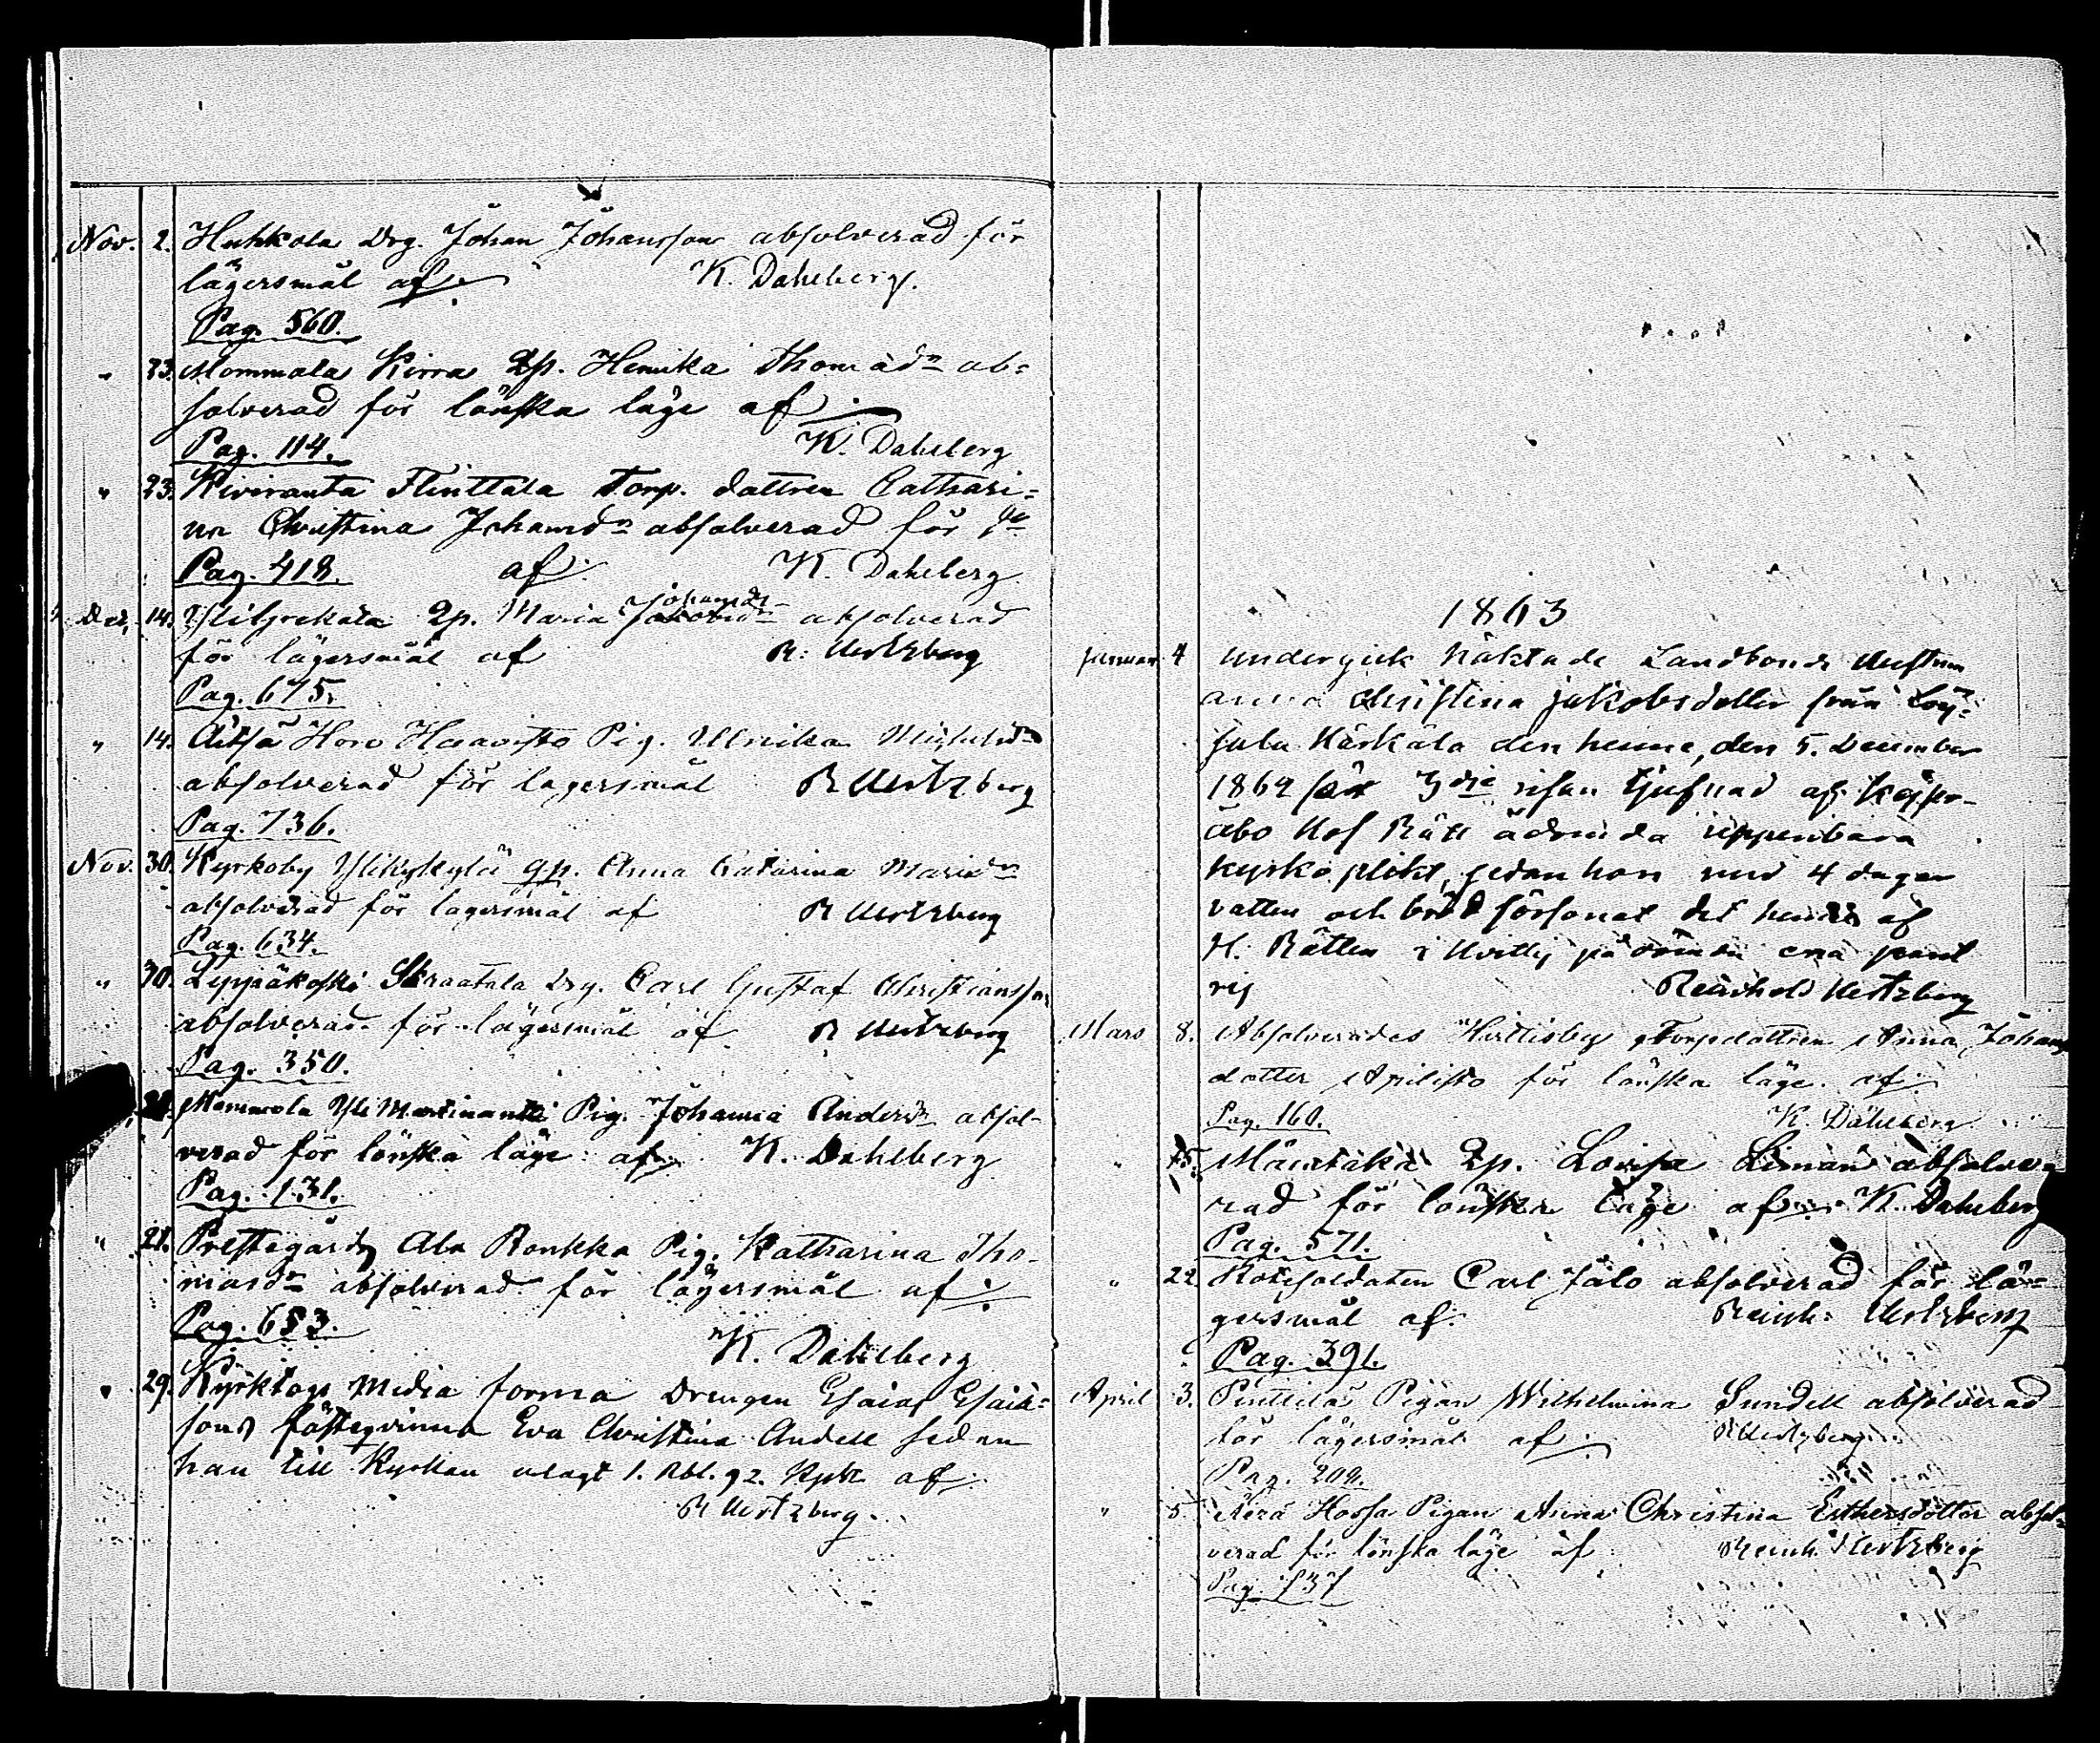 Nov. 2. Huhkola Drg. Johan Johansson absolverad för
lägersmål af. K. Dahlberg.
Pag. 560.
" 23. Mommala Kirra Qp. Henrika Thomasdr ab-
solverad för lönska läge af
Pag. 114. K. Dahlberg
" 23. Kiviranta Flinttala Torp. dottren Cathari-
na Christina Johansdr absolverad för do
Pag. 418. af K. Dahlberg
Dec. 14. Qp. Maria Johansdr absolverad
för lägersmål af R. Hertzberg
Pag. 675.
" 14. Haavisto Pig. Ulrika
absolverad för lagersmål R Hertzberg
Pag. 736.
Nov. 30. Kyrkoby Ylikylylä qp. Anna Catarina Mariedr
absolverad för lagersmål af R Hertzberg
Pag. 634.
" 30. Leppäkoski Skraatala Drg. Carl Gustaf Christiansson
absolverad för lägersmål af R Hertzberg
Pag. 350.
Mommola Yli Martinantti Pig. Johanna Andersdr absol-
verad för lönska läge af K. Dahlberg
Pag. 131.
" 21. Prestegårds Ala Ronkka Pig. Katharina Tho-
masdr absolverad för lägersmål af
Pag. 653.
K. Dahlberg
" 29. Kyrktogs media forma Drengen Esaias Esaia-
sons fästeqvinna Eva Christina Andell sedan
han till Kyrkan erlagt 1. Rbl. 92. Kpk af
R Hertzberg.
1863
Januar. 4 undergick häktade Landbonde Hustrun
Anna Christina Jakobsdotter från
Härkälä den henne, den 5. December
1862 för 3die resan tjufnad af Kejser-
Åbo Hof Rätt ådömda uppenbara
kyrko plikt, sedan hon med 4 dagar
vatten och bröd försonat det hennes af
H. Rätten
Reinhold Hertzberg
Mars 8. Absolverades Hirttisby Torpdottren Anna Johans
dotter Aprilisto för lönska läge af
Pag. 160. K. Dahlberg
" 15. Mäentaka Qp. Lovisa Liman absolve-
rad för lönska läge af K. Dahlberg
Pag. 571.
" 22. Rotesoldaten Carl Jalo absolverad för lä-
gersmål af Reinh. Hertzberg
Pag. 391.
April 3. Penttilä Pigan Wilhelmina Sundell absolverad
för lägersmål af R Hertzberg
Pag. 209.
" 5 Hossa Pigan Anna Christina Esthersdotter absol-
verad för lönska läge af Reinh. Hertzberg
Pag. 737